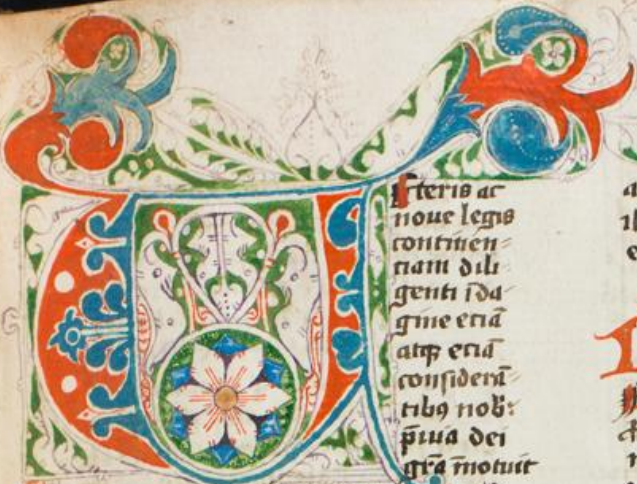 Eteris ac
noue legis
continen=
ciam dili
genti īda
gine eciā
atqꝫ eciā
considerā=
tibꝰ nob:
p̄ma dei
grā īnotuit